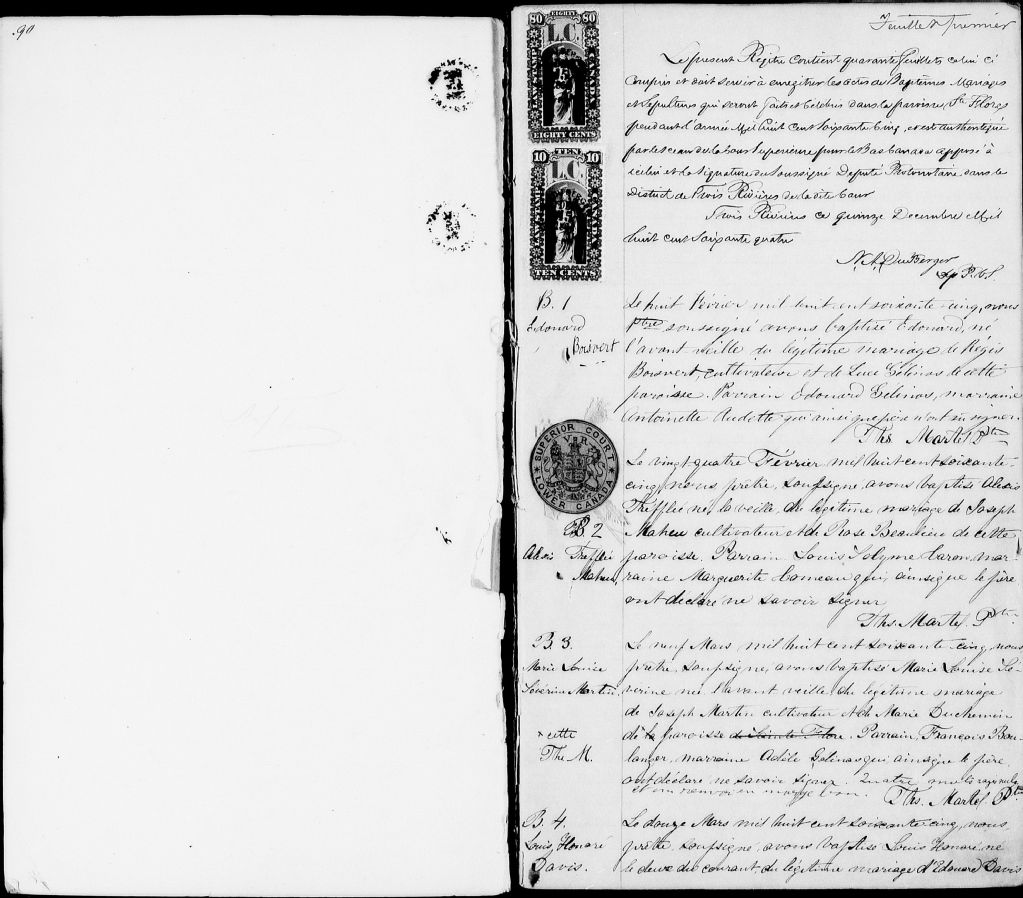 90
Feuillet premier
EIGHTY
80 80
L.C.
EIGHTY CENTS
TEN
10 10
L.C.
TEN CENTS
Le présent Régitre contient quarante feuillets celui ci
compris et doit servir à enregitrer les actes de Baptêmes Mariages
et Sépultures qui seront faits et célébrés dans la paroisse, Ste Flore
pendant l'année Mil huit cent soixante Cinq, et est authentiqué
par le sceau de la Cour Supérieure pour le Bas Canada apposé à
icelui et la signature du Soussigné Député Protonotaire dans le
District de Trois Rivières de la dite Cour
Trois Rivières ce quinze Decembre Mil
huit cent soixante quatre
B. 1
Edouard
Boisvert
Le huit Février mil huit cent soixante-cinq, nous
ptre soussigné avons baptisé Edouard, né
l'avant veille du légitime mariage de Régis
Boisvert, cultivateur et de Luce Gelinas de cette
paroisse. Parrain Edouard Gelinas, marraine
Antoinette Audette qui ainsi que père n'ont su signer.
Ths Martel Ptre
SUPERIOR COURT
V R
LOWER CANADA
B. 2
Alexis Trefflée
Maheu
Le vingt-quatre Février mil huit cent soixante-
cinq, nous prêtre, soussigné, avons baptisé Alexis
Trefflée né, la veille, du légitime mariage de Joseph
Maheu cultivateur et de Rose Beaulieu de cette
paroisse. Parrain Louis Solyme Caron, mar-
raine Marguerite Comeau qui, ainsi que le père
ont déclaré ne savoir signer
Ths. Martel. Ptre
B. 3.
Marie Louise
Séverine Martin
x cette
Ths M.
Le neuf Mars mil huit cent soixante-cinq, nous
prêtre, soussigné, avons baptisé Marie Louise Sé-
verine née l'avant veille du légitime mariage
de Joseph Martin cultivateur et de Marie Duchemin
de x la paroisse de Sainte Flore. Parrain, François Bou-
langer, marraine Adèle Gelinas qui ainsi que le père
ont déclaré ne savoir signer. Quatre mots rayés nuls
et un renvoi en marge bon.
Ths. Martel. Ptre
B. 4.
Louis, Honoré
Davis.
Le douze Mars mil huit cent soixante cinq, nous
prêtre, soussigné, avons baptisé Louis Honoré, né
le deux du courant du légitime mariage d'Edouard Davis